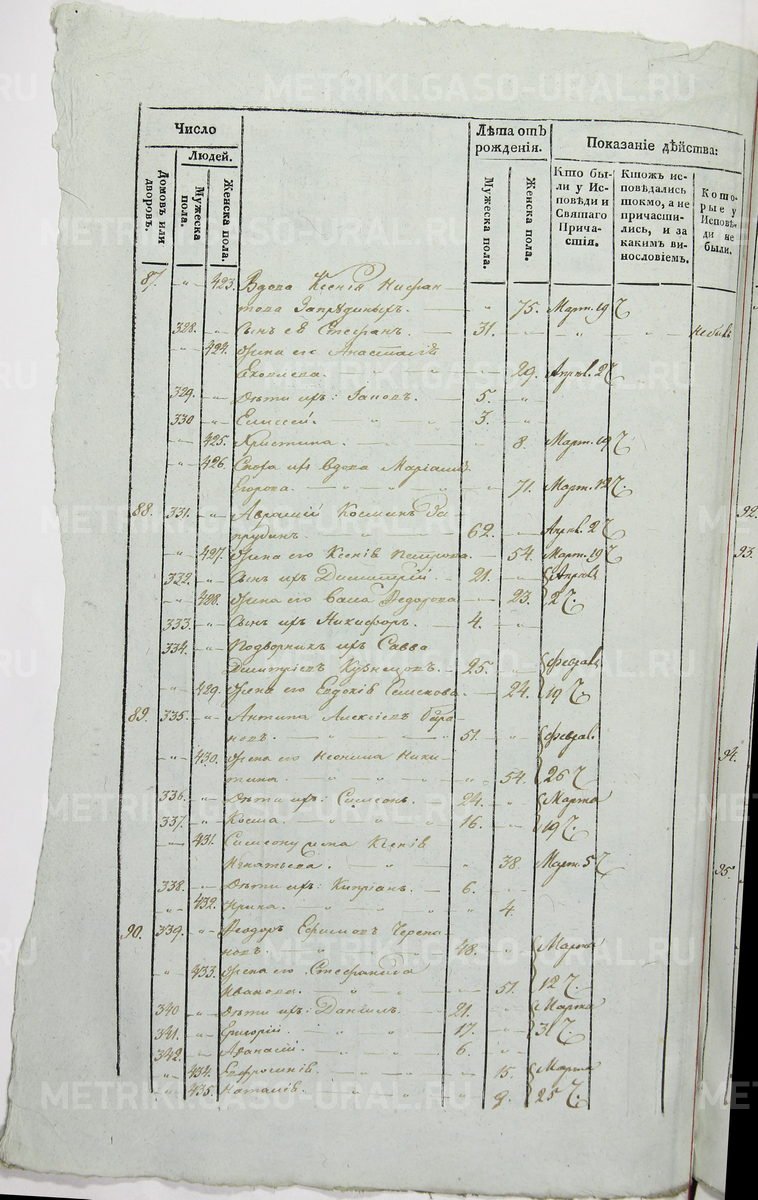 METRIKI.GASO-URAL.RU
Число
Людей.
Домовъ или дворовъ.
Мужеска пола.
Женска пола.
Лѣта отъ рожденія.
Мужеска пола.
Женска пола.
Показаніе дѣйства:
Кто были у Исповѣди и Святаго Причастія.
Ктожъ исповѣдались токмо, а не причастились, и за какимъ винословіемъ.
Которые у Исповѣди не были.
87. 423. Вдова Ксенія
75. Март. 19
328. Сынъ её Стефанъ. 31. не былъ
424. Жена его Анастасія
Яковлева. 29. Апрел. 2
329. Дѣти ихъ: 5.
330 Елиссей. 3.
425. Христина. 8. Март. 19
426. вдова
Егорова. 71. Март. 12
88. 331. Авраамій Косминъ За
прудинъ. 62. Апрел. 2
427. Жена его Ксенія Петрова. 54. Март. 19
332. Сынъ ихъ Димитрій. 21. Апрел.
428. Жена его Ѳедорова 23. 2
333. Сынъ ихъ Никифоръ. 4.
334. Подворникъ ихъ Савва
Димитріевъ Кузнецовъ. 25. Феврал.
429. Жена его Евдокія 24. 19
89. 335. Антипа Алексіевъ
51. Феврал.
430. Жена его Неонила Ники-
тина. 54. 26
336. Дѣти ихъ: Симеонъ. 24. Марта
337. Косма. 16. 19
431. Симеону жена Ксенія
Игнатьева. 38. Март. 5
338. Дѣти ихъ: Кипріанъ. 6.
432. Ирина. 4.
90. 339. Ѳеодоръ Ефимовъ Черепа
новъ. 48. Марта
433. Жена его Стефанида
Иванова. 51. 12
340 Дѣти ихъ: Даніилъ. 21. Марта
341. Григорій. 17. 31
342. Аѳанасій. 6.
434. Евфросинія. 15. Марта
435. Наталія. 9. 25
92.
93.
94.
95.